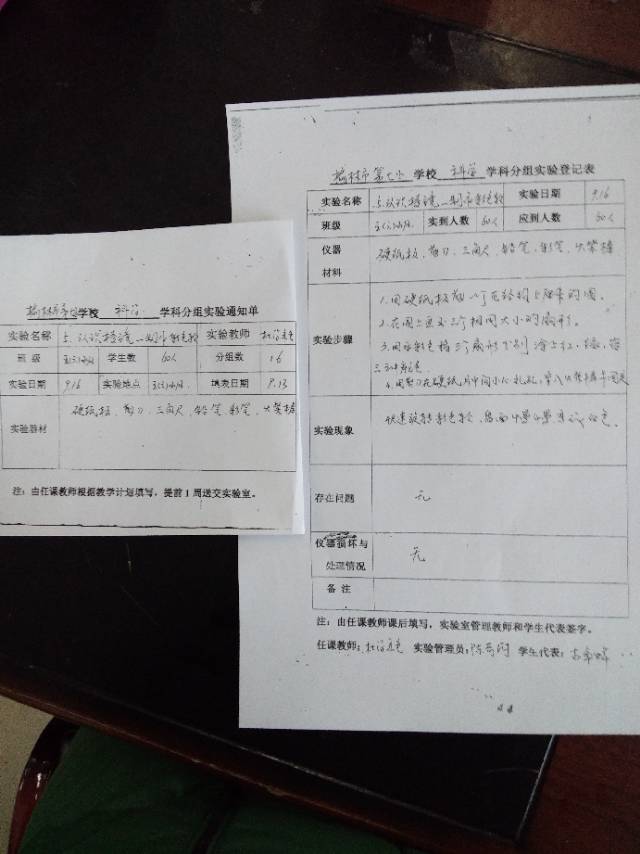 学校 科学 学科分组实验通知单
实验名称 5. 制作彩色轮 实验教师
班级 学生数 60人 分组数 16
实验日期 9.16 实验地点 填表日期 9.13
实验器材 硬纸板、剪刀、三角尺、铅笔、彩笔、火柴棒
注：由任课教师根据教学计划填写，提前1周送交实验室。
榆林市第七小 学校 科学 学科分组实验登记表
实验名称 5. 制作彩色轮 实验日期 9.16
班级 实到人数 60人 应到人数 60人
仪器 硬纸板、剪刀、三角尺、铅笔、彩笔、火柴棒
材料
1.用硬纸板剪一个 的圆。
2.在圆上画出三个相同大小的扇形。
实验步骤 3.用 三个扇形分别涂上红、绿、蓝
三种颜色。
4.用剪刀在硬纸片中间 扎孔，穿入火柴棒并固定
实验现象 快速旋转彩色轮，
存在问题 无
仪器损坏与 无
处理情况
备注
注：由任课教师课后填写，实验室管理教师和学生代表签字。
任课教师： 实验管理员： 学生代表：